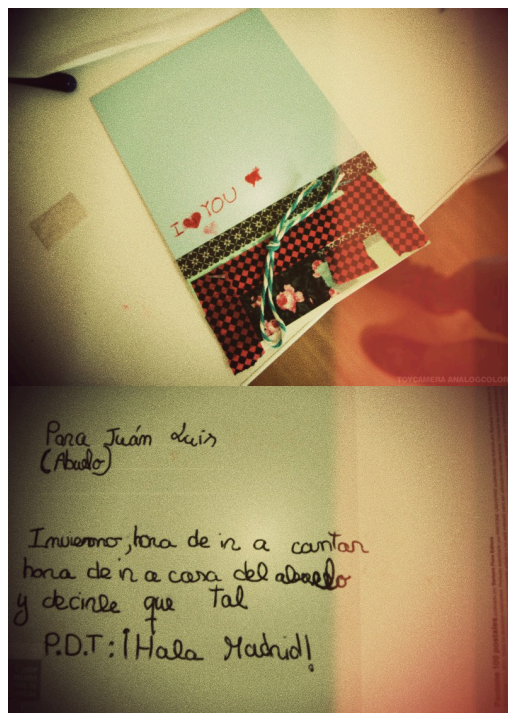 I ♥ YOU ♥
TOYCAMERA ANALOGCOLOR
Para Juán Luis
(Abuelo)
Invierno, hora de ir a cantar
hora de ir a casa del abuelo
y decirle que tal
P.D.T: ¡Hala Madrid!